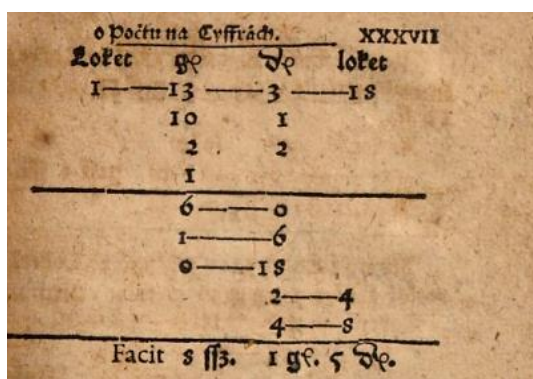 o Počtu na Cyffrách. XXXVII
Loket g℘ d℘ loket
1——13——3——18
10 1
2 2
1
6——0
1——6
0——18
2——4
4——8
Facit 8 ſſʒ. 1 g℘. 5 d℘.